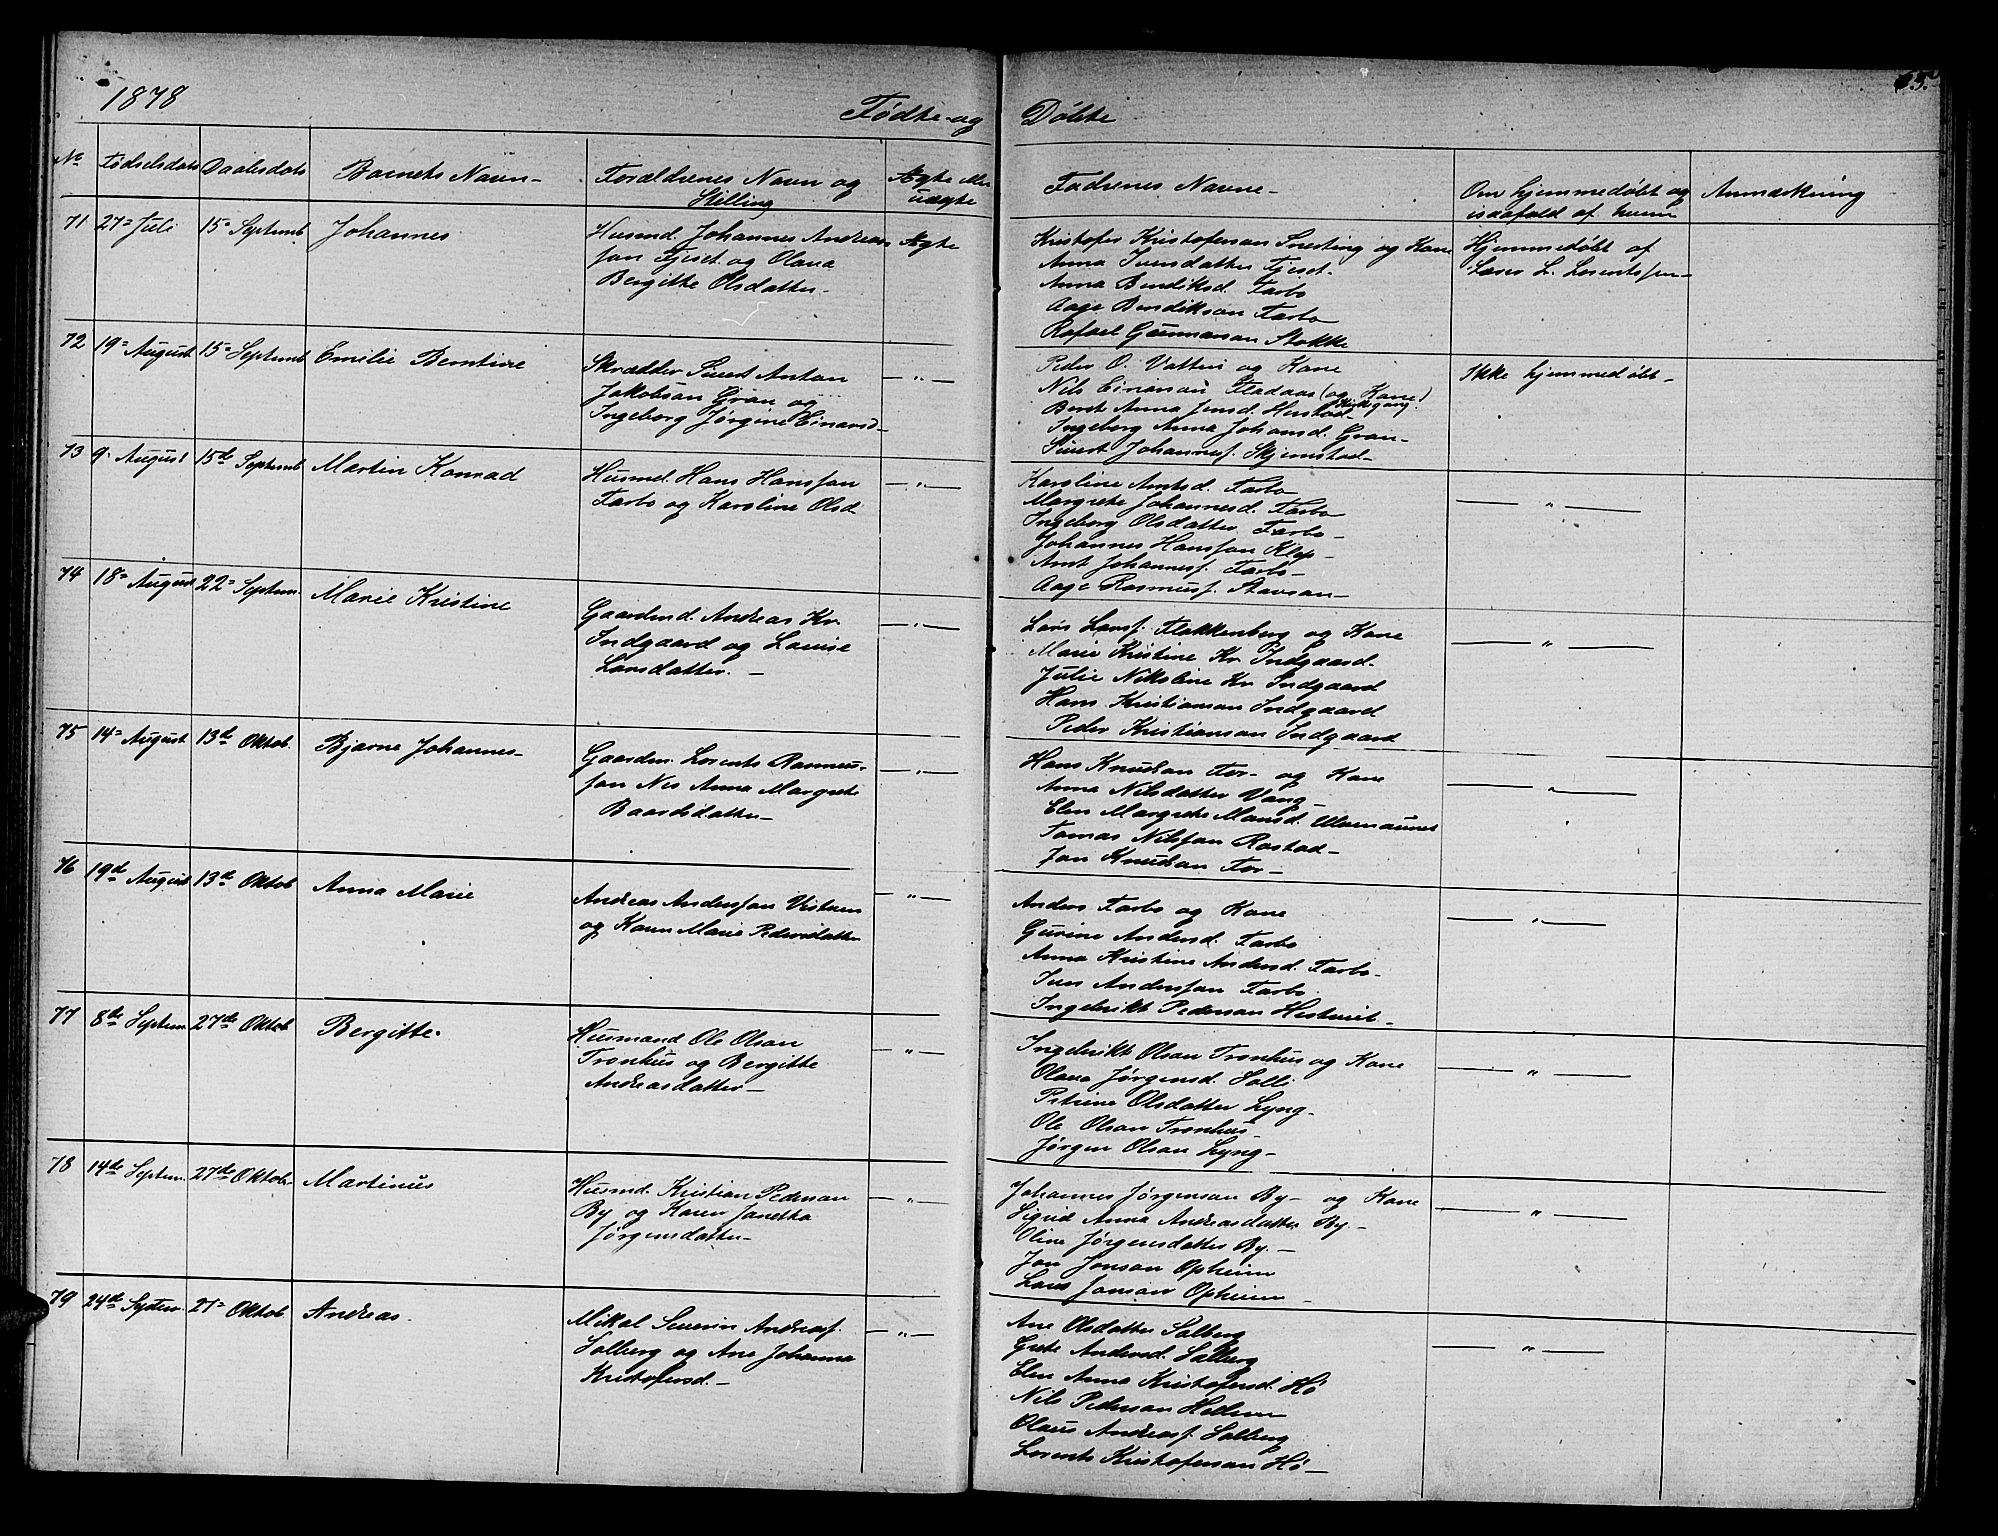 1878
65.
Fødte og Døbte
No Fødselsdato Daabsdato Barnets Navn Forældrenes Navn og Stilling Ægte eller uægte Fadrenes Navne Om hjemmedøbt og isaafald af hvem Anmærkning
71 27= Juli 15= Septemb. Johannes
Husmd. Johannes Andreas
san Fjeset og Olava
Bergitte Olsdatter
Ægte
Kristofer Kristofersan Snesting og Kone
Anna Ivensdatter Fjeset
Anna Bendiksd. Tarbo
Aage Bendiksan Tarbo
Rafael Gunnarsan Stokke
Hjemmedøbt af
Lars L. Lorentssen
72 19= August 15= Septemb Emilie Berntine
Skrædder Sivert Anton
Jakobsan Gran og
Ingeborg Jørgine Einarsd
— " —
Peder O. Vatten og Kone
Nils Einarsan Fladaas (og Kone)
Kirkegang
Beret Anna Jensd. Herstad
Ingeborg Anna Johansd. Gran
Sivert Johannesf. Skjemstad
Ikke hjemmedøbt
73 9. August 15de Septemb Martin Konrad
Husmd. Hans Hanssan
Tarbo og Karoline Olsd
— " —
Karoline Arntsd. Tarbo
Margrete Johannesd. Tarbo
Ingeborg Olsdatter Tarbo
Johannes Hanssan Klep
Arnt Johannesf. Tarbo
Aage Rasmusf. Stavsan
— " —
74 18= August 22= Septem. Marie Kristine
Gaardmd. Andreas Kr.
Indgaard og Louise
Larsdatter
— " —
Lars Larsf. Flakkenberg og Kone
Marie Kristine Kr. Indgaard
Julie Nikoline Kr. Indgaard
Hans Kristiansan Indgaard
Peder Kristiansan Indgaard
— " —
75 14= August 13de Oktob. Bjarne Johannes
Gaardm. Lorents Rasmus-
san Nes Anna Margrete
Baardsdatter
— " —
Hans Knudsan For og Kone
Anna Nilsdatter Vang
Elen Margrete Mansd.
Tomas Nilssan Rostad
Jon Knudsan For
— " —
76 19de August 13de Oktob Anna Marie
Andreas Anderssan Vistven
og Karen Marie Pedersdatter
— " —
Anders Tarbo og Kone
Gurine Andersd. Tarbo
Anna Kristine Andersd. Tarbo
Iver Anderssan Tarbo
Ingebrikt Pedersan Hestveit
— " —
77 8de Septem. 27de Oktob Bergitte
Husmand Ole Olsan
Tronhus og Bergitte
Andreasdatter
— " —
Ingebrikt Olsan Tronhus og Kone
Olava Jørgensd. Salli
Petrine Olsdatter Lyng
Ole Olsan Tronhus
Jørgen Olsan Lyng
— " —
78 14de Septem. 27de Oktob. Martinus
Husmd. Kristian Pedersan
By og Karen Janetta
Jørgensdatter
— " —
Johannes Jørgensan By og Kone
Sigrid Anna Andreasdatter By
Oline Jørgensdatter By
Jon Jonsan Opheim
Lars Jonsan Opheim
— " —
79 24de Septem. 27= Oktob Andreas
Mikal Severin Andreasf.
Salberg og Ane Johanna
Kristofersd.
— " —
Ane Olsdatter Salberg
Grete Andersd. Salberg
Elen Anna Kristofersd. Hø
Nils Pedersan Hellem
Olaus Andreasf. Salberg
Lorents Kristofersan Hø
— " —